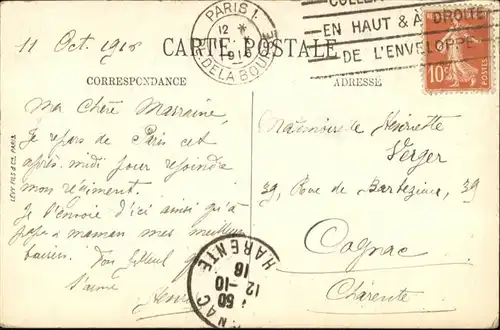 11 Oct. 1916
PARIS 1.
12 *
1916
DE LA BOURSE
EN HAUT & À DROITE
DE L'ENVELOPPE
10c
POSTES
CARTE POSTALE
CORRESPONDANCE
ADRESSE
LÉVY FILS & CIE, PARIS
Ma Chère Marraine,
Je repars de Paris cet
après-midi pour rejoindre
mon régiment.
Je t'envoie d'ici ainsi qu'à
papa & maman mes meilleurs
baisers. Ton filleul q
t'aime
Henri
Mademoiselle Henriette
Verger
39, Rue de Barbezieux, 39
Cognac
Charente
NAC
HARENTE
50
12-10
16